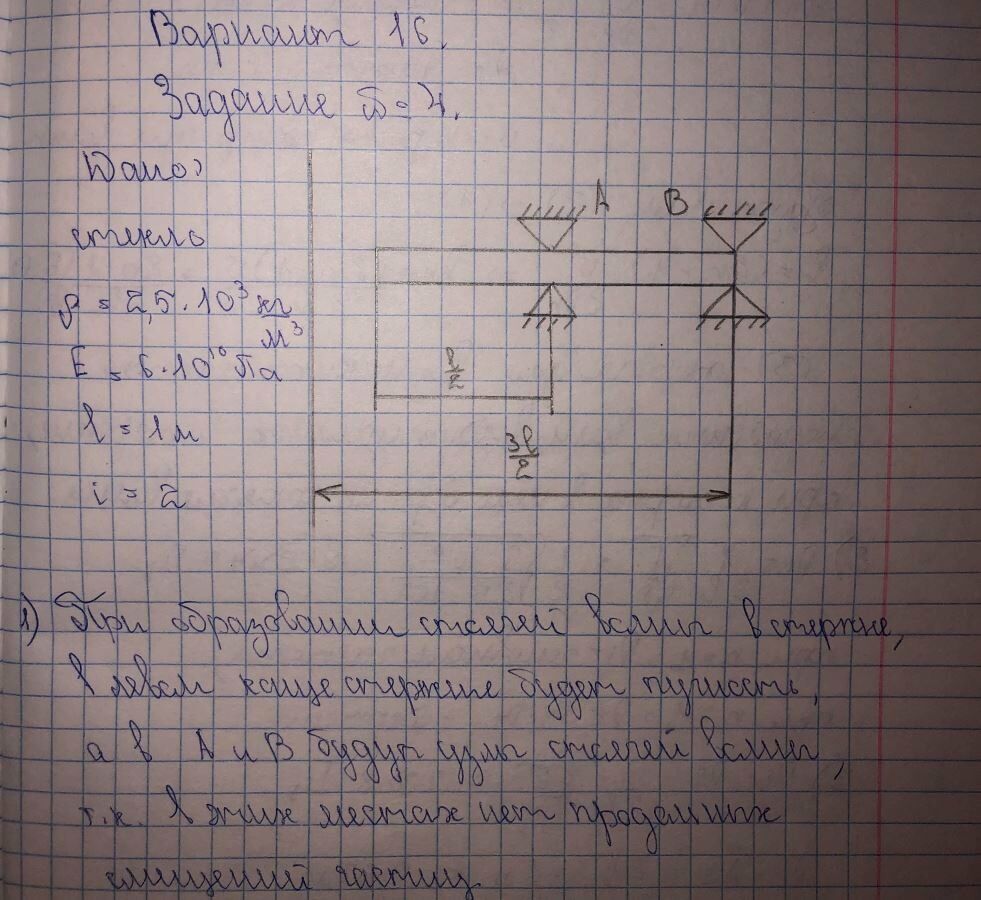 Вариант 16.
Задание n=4.
Дано:
стекло
ρ = 2,5·10³ кг/м³
E = 6·10¹⁰ Па
l = 1 м
i = 2
A B
l/2
3l/2
1) При образовании стоячей волны в стержне,
в левом конце стержня будет пучность,
а в A и B будут узлы стоячей волны,
т.к. в этих местах нет продольных
смещений частиц